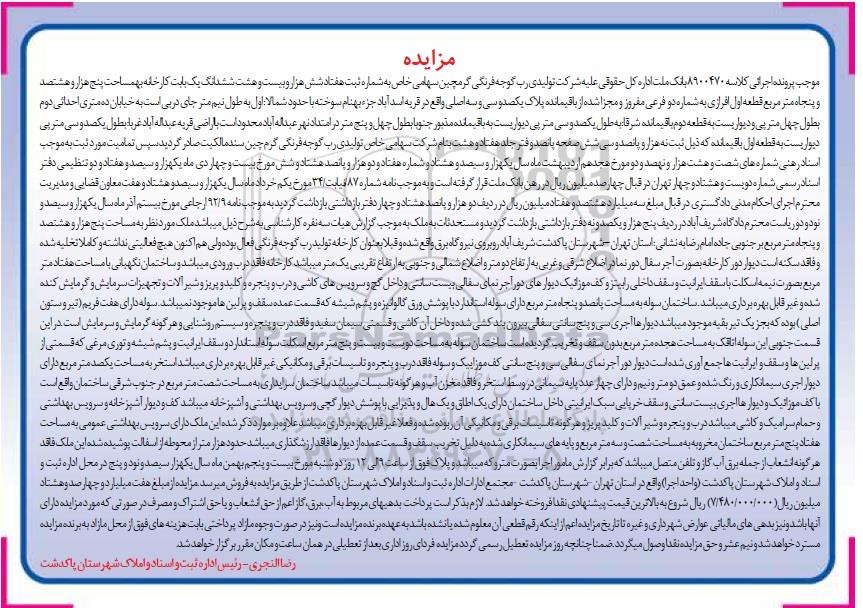 مزایده
موجب پرونده اجرائی کلاسه ۸۹۰۰۴۷۰ بانک ملت اداره کل حقوقی علیه شرکت تولیدی رب گوجه فرنگی گرمچین سهامی خاص به شماره ثبت هفتاد شش هزار و بیست و هشت ششدانگ یک بابت کارخانه بهمساحت پنج هزار و هشتصد
و پنجاه متر مربع قطعه اول افرازی به شماره دو فرعی مفروز و مجزا شده از باقیمانده پلاک یکصد وسی و سه اصلی واقع در قریه اسد آباد جزء بهنام سوخته با حدود شمالا: اول به طول نیم متر جای دربی است به خیابان ده متری احداثی دوم
بطول چهل متر پی و دیواریست به قطعه دوم باقیمانده شرقا به طول یکصد و سی متر پی دیواریست به باقیمانده مذبور جنوبا بطول چهل و پنج متر در امتداد نهر عبداله آباد محدود است با اراضی قریه عبداله آباد غربا بطول یکصد و سی متر پی
دیواریست به قطعه اول باقیمانده که ذیل ثبت نه هزار و پانصد و سی شش صفحه پانصد و فتر جلد هفتاد و هشت بنام شرکت سهامی خاص تولیدی رب گوجه فرنگی گرم چین سند مالکیت صادر گردید سپس تمامیت مورد ثبت به موجب
اسناد رهنی شماره های شصت و هشت هزار و نهصد و دو مورخ هجدهم اردیبهشت ماه سال یکهزار و سیصد و هشتاد و شماره هفتاد و دو هزار و پانصد هشتاد و شش مورخ بیست و چهار دی ماه یکهزار و سیصد و هفتاد و دو تنظیمی دفتر
اسناد رسمی شماره دویست و هشتاد و چهار تهران در قبال چهارصد میلیون ریال در رهن بانک ملت قرار گرفته است و به موجب نامه شماره ۸۷/بیات/۳۴ مورخ یکم خرداد ماه سال یکهزار و سیصد و هشتاد و هفت معاون قضایی و مدیریت
محترم اجرای احکام مدنی دادگستری در قبال مبلغ سه میلیارد هشتصد و هفتاد میلیون ریال در ردیف دو هزار و پانصد هشتاد و چهار دفتر بازداشتی بازداشت گردید به موجب نامه ۹۲/۹ ارجاعی مورخ بیستم آذر ماه سال یکهزار و سیصد و
نود و دو ریاست محترم دادگاه شریف آباد در ردیف پنج هزار و یکصد و نه دفتر بازداشتی بازداشت گردید و مستحدثات به ملک به موجب گزارش هیات سه نفره کارشناسی به شرح ذیل میباشد ملک مورد نظر به مساحت پنج هزار و هشتصد
و پنجاه متر مربع بر جنوبی جاده امام رضا به نشانی: استان تهران – شهرستان پاکدشت شریف آباد روبروی نیروگاه برق واقع شده و قبلا بعنوان کارخانه تولید رب گوجه فرنگی فعال بوده ولی هم اکنون هیچ فعالیتی نداشته و کاملا تخلیه شده
و فاقد سکنه است دیوار دور کارخانه بصورت آجر سفال دور نمای اضلاع شرقی و غربی به ارتفاع دو متر و اضلاع شمالی و جنوبی به ارتفاع تقریبی یک متر میباشد کارخانه فاقد درب ورودی میباشد و ساختمان نگهبانی با مساحت هفتاد متر
مربع بصورت نیمه اسکلت با سقف ایرانیت و سقف داخلی رابیتز و کف موزائیک دیوار های دور آجر نمای سفالی بیست سانتی و داخل گچ و سرویس های کاشی و درب و پنجره و کلید و پریز و شیر آلات و تجهیزات سرمایش و گرمایش کنده
شده و غیر قابل بهره برداری میباشد. ساختمان سوله به مساحت پانصد و پنجاه متر مربع دارای سوله استاندارد با پوشش ورق گالوانیزه و پشم شیشه که قسمت عمده سقف و پرلین ها موجود نمیباشد. سوله دارای هفت فریم (تیر و ستون
اصلی) بوده که بجز یک تیر بقیه موجود میباشد دیوارها آجری سی و پنج سانتی سفالی بیرون بند کشی شده و داخل آن کاشی و قسمتی سیمان سفید و فاقد درب و پنجره و سیستم روشنایی و هر گونه گرمایش و سرمایش است. در این
قسمت جنوبی این سوله اتاقک به مساحت هجده متر مربع بدون سقف و تخریب گردیده است ساختمان سوله به مساحت دویست و بیست و پنج متر مربع اسکلت سوله استاندارد و سقف ایرانیت و پشم شیشه و توری مرغی که قسمتی از
پرلین ها و سقف و ایرانیت ها جمع آوری شده است دیوار دور آجر نمای سفالی سی و پنج سانتی کف موزاییک و سوله فاقد درب و پنجره و تاسیسات برقی و مکانیکی غیر قابل بهره برداری میباشد استخر به مساحت یکصد متر مربع دارای
دیوار اجری سیمانکاری و رنگ شده و عمق دو متر و نیم و دارای چهار عدد پایه سیمانی در وسط استخر و فاقد مخزن آب و هر گونه تاسیسات میباشد ساختمان سرایداری به مساحت شصت متر مربع در جنوب شرقی ساختمان واقع است
با کف موزائیک و دیوارها اجری بیست سانتی و سقف خرپایی سبک ایرانیتی داخل ساختمان دارای یک اطاق و یک هال و پذیرایی با پوشش دیوار گچی و سرویس بهداشتی و آشپزخانه میباشد کف و دیوار آشپزخانه و سرویس بهداشتی
و حمام سرامیک و کاشی میباشد درب و پنجره و شیر آلات و کلید پریز و هر گونه تاسیسات برقی و مکانیکی آن ربوده شده و فعلا غیر قابل بهره برداری میباشد علاوه بر موارد ذکر شده این ملک دارای سرویس بهداشتی عمومی به مساحت
هفتاد پنج متر مربع ساختمان مخروبه به مساحت شصت و سه متر مربع و پایه های سیمانکاری شده به دلیل تخریب سقف و قسمت عمده از دیوارها فاقد ارزشگذاری میباشد حدود هزار متر از محوطه از اسفالت پوشیده شده این ملک فاقد
هر گونه انشعاب از جمله برق آب گاز و تلفن متصل میباشد که برابر گزارش مامور اجرا بصورت مترو که میباشد و پلاک فوق از ساعت ۹ الی ۱۲ روز دوشنبه مورخ بیست و پنجم بهمن ماه سال یکهزار سیصد و نود و پنج در محل اداره ثبت و
اسناد و املاک شهرستان پاکدشت (واحد اجرا) واقع در استان تهران –شهرستان پاکدشت –مجتمع ادارات اداره ثبت و اسناد و املاک شهرستان پاکدشت از طریق مزایده به فروش میرسد مزایده از مبلغ هفت میلیارد و چهار صد و هشتاد
میلیون ریال (۷/۴۸۰/۰۰۰/۰۰۰) ریال شروع به بالاترین قیمت پیشنهادی نقدا فروخته خواهد شد. لازم بذکر است پرداخت بدهیهای مربوط به آب، برق، گاز اعم از حق انشعاب و یا حق اشتراک و مصرف در صورتی که مورد مزایده دارای
آنها باشد و نیز بدهی های مالیاتی عوارض شهرداری و غیره تا تاریخ مزایده اعم از اینکه رقم قطعی آن معلوم شده یا نشده باشد به عهده برنده مزایده است و نیز در صورت وجود مازاد پرداختی بابت هزینه های فوق از محل مازاد به برنده مزایده
مسترد خواهد شد و نیم عشر و حق مزایده نقدا وصول میگردد. ضمنا چنانچه روز مزایده تعطیل رسمی گردد مزایده فردای روز اداری بعد از تعطیلی در همان ساعت و مکان مقرر برگزار خواهد شد.
رضا التجری – رئیس اداره ثبت و اسناد و املاک شهرستان پاکدشت
ParsNamadData
پایگاه اطلاع رسانی مناقصه و مزایده
۰۲۱-۸۸۳۴۹۶۷۰-۵